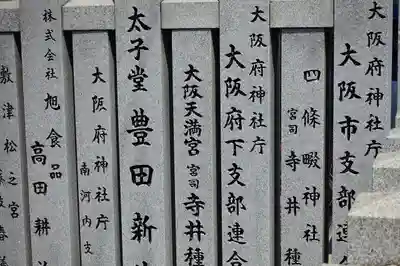 大阪府神社庁
大阪市支部連
四條畷神社
宮司 寺井種
大阪府神社庁
大阪府下支部連合
大阪天満宮 宮司 寺井種
太子堂 豊田新
大阪府神社庁
南河内支
株式会社 旭食品
高田耕
敷津松之宮